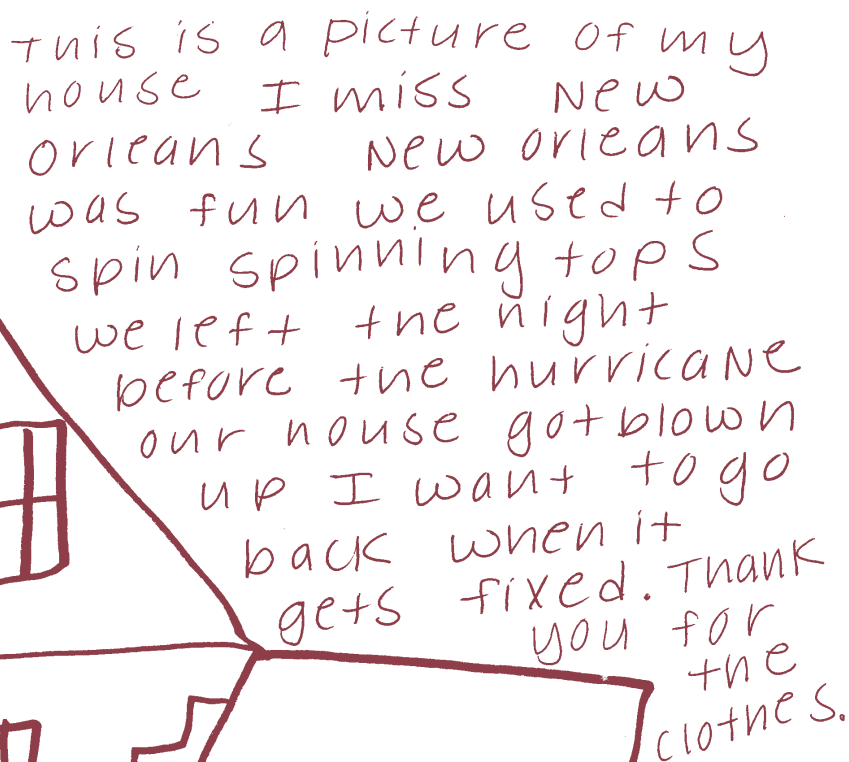 This is a picture of my
house I miss New
Orleans New Orleans
was fun we used to
spin spinning tops
we left the night
before the hurricane
our house got blown
up I want to go
back when it
gets fixed. Thank
you for
the
clothes.